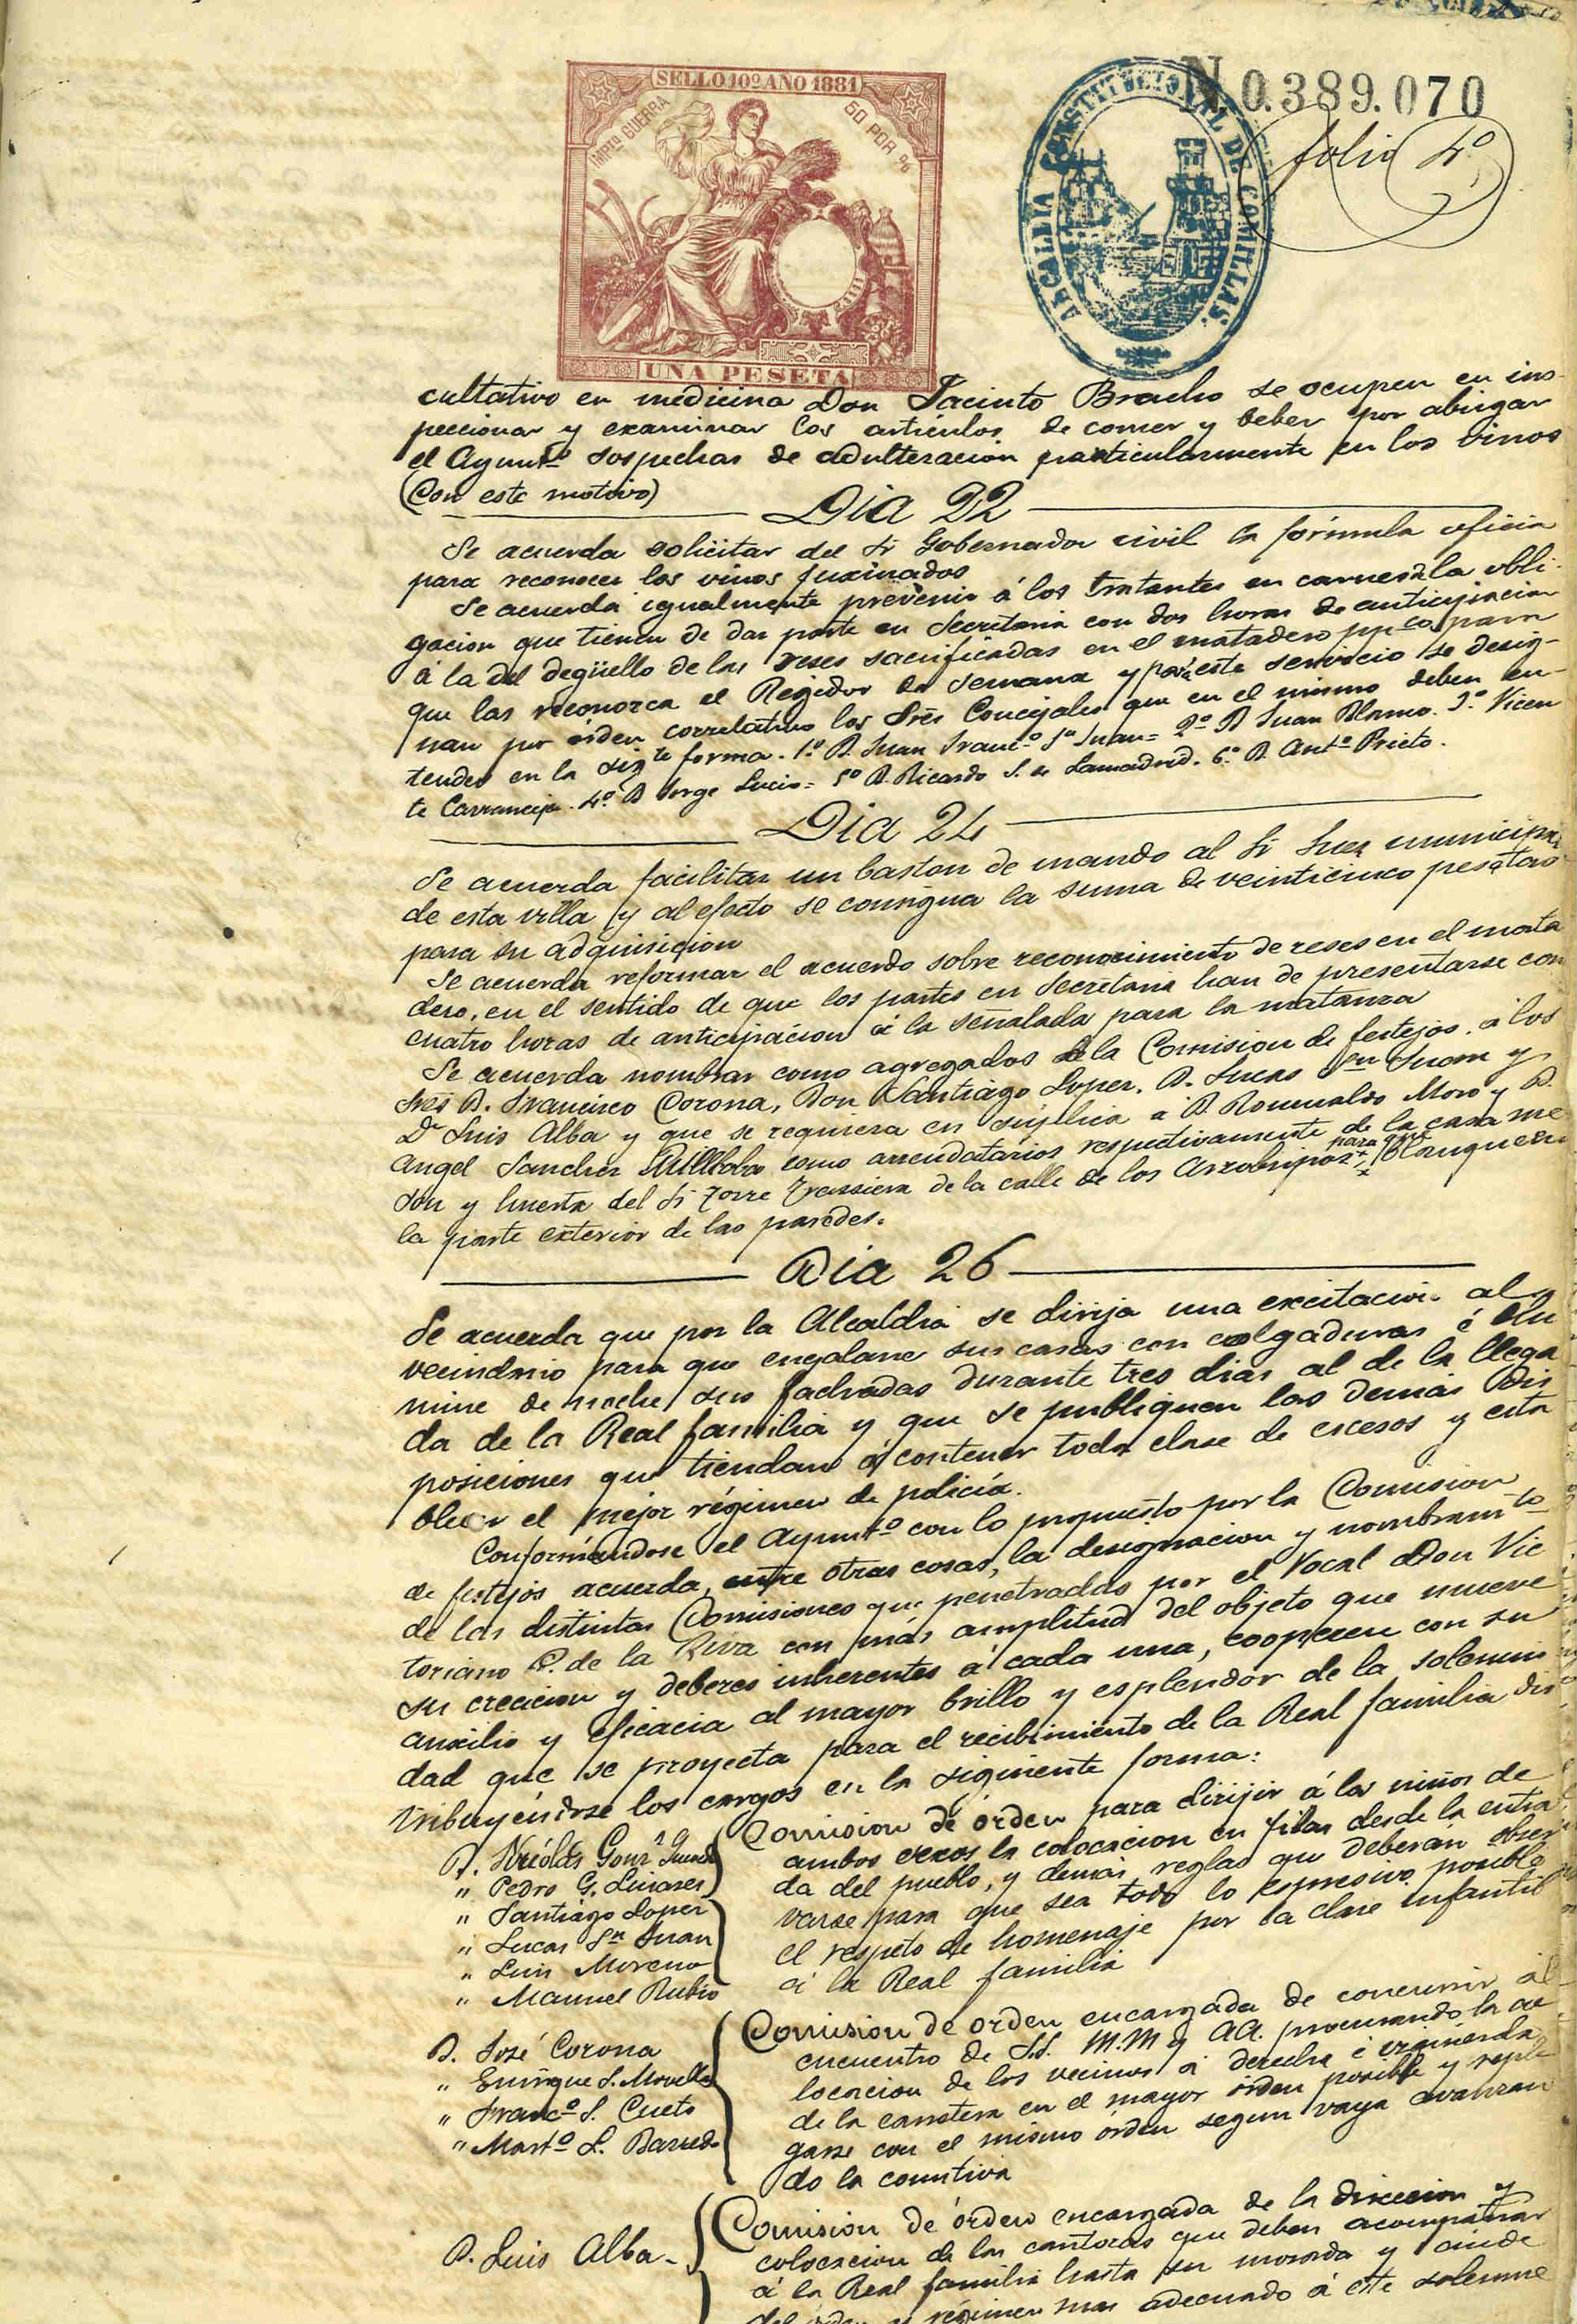 SELLO 10º AÑO 1881
IMPTO GUERRA
50 POR %
UNA PESETA
ALCALDIA CONSTITUCIONAL DE COMILLAS.
N.0.389.070
folio 4º
cultativo en medicina Don Jacinto Bracho se ocupen en ins-
peccionar y examinar los artículos de comer y beber por abrigar
el Ayuntº sospechas de adulteracion particularmente en los vinos
(Con este motivo)
Dia 22
Se acuerda solicitar del Sr Gobernador civil la fórmula oficia
para reconocer los vinos fuxinados
Se acuerda igualmente prevenir á los tratantes en carnes la obli-
gacion que tienen de dar parte en Secretaria con dos horas de anticipacion
á la del degüello de las reses sacrificadas en el matadero ppco para
que las reconozca el Regidor de Semana y para este servicio se desig-
nan por órden correlativo los Sres Concejales que en el mismo deben en-
tender en la sigte forma. 1.º D. Juan Francº Sn Juan = 2º D Juan Blanco. 3º Vicen
te Carranceja. 4º D Jorge Lucio = 5º D. Ricardo S. de Lamadrid. 6º D. Antº Prieto.
Dia 24
Se acuerda facilitar un baston de mando al Sr Juez municipal
de esta villa y al efecto se consigna la suma de veinticinco pesetas
para su adquisicion
Se acuerda reformar el acuerdo sobre reconocimiento de reses en el mata
dero, en el sentido de que los partes en Secretaria han de presentarse con
cuatro horas de anticipacion á la señalada para la matanza
Se acuerda nombrar como agregados de la Comision de festejos á los
Sres D. Francisco Corona, Don Santiago Lopez, D. Lucas Sn Juan y
Dn Luis Alba y que se requiera en súplica á D Romualdo Moro y D.
Angel Sanchez como arrendatarios respectivamente de la casa me
son y huerta del Sr Torre Trassierra de la calle de los Arzobispos, para que blanqueen
la parte exterior de las paredes.
Dia 26
Se acuerda que por la Alcaldia se dirija una excitacion al
vecindario para que engalane sus casas con colgaduras é ilu
mine de noche sus fachadas durante tres dias al de la llega
da de la Real familia y que se publiquen las demás dis
posiciones que tiendan á contener toda clase de excesos y esta
blecer el mejor régimen de policía.
Conformándose el Ayuntº con lo propuesto por la Comision
de festejos acuerda, entre otras cosas, la designacion y nombramto
de las distintas Comisiones que penetradas por el Vocal Don Vic
toriano P. de la Riva con más amplitud del objeto que mueve
su creacion y deberes inherentes á cada una, cooperen con su
auxilio y eficacia al mayor brillo y esplendor de la solemni
dad que se proyecta para el recibimiento de la Real familia dis
tribuyéndose los cargos en la siguiente forma:
D. Nicolás Gonz
" Pedro G. Linares
" Santiago Lopez
" Lucas Sn Juan
" Luis Moreno
" Manuel Rubio
Comision de órden para dirijir á los niños de
ambos sexos la colocacion en filas desde la entra
da del pueblo, y demás reglas que deberán obser
varse para que sea todo lo espresivo posible
el respeto de homenaje por la clase infantil
á la Real familia
D. José Corona
" Enrique S. Movellan
" Francº S. Cueto
" Martº L. Barreda
Comision de órden encargada de concurrir al
encuentro de S.S. M.M y AA. procurando la co
locacion de los vecinos á derecha é izquierda
de la carretera en el mayor órden posible y reple
garse con el mismo órden segun vaya avanzan
do la comitiva
D. Luis Alba -
Comision de órden encargada de la direccion y
colocacion de las cantoras que deben acompañar
á la Real familia hasta su morada y cuide
del órden y régimen mas adecuado á este solemne